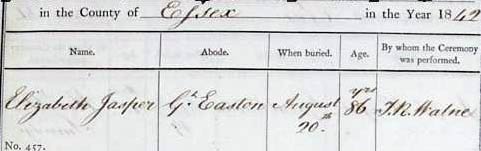 in the County of Essex in the Year 1842
Name. Abode. When buried. Age. By whom the Ceremony was performed.
Elizabeth Jasper Gt. Easton August 20th 86 yrs
No. 457.